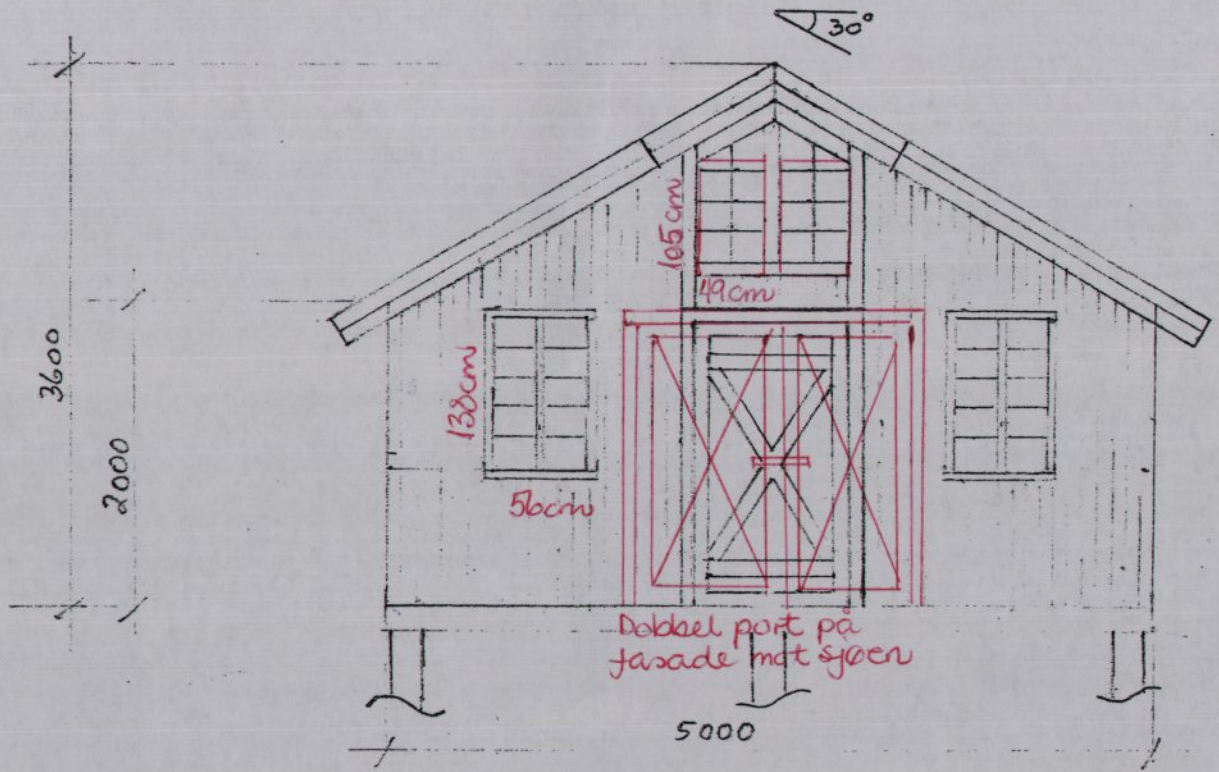 30°
3600
2000
105cm
49cm
138cm
56cm
Dobbel port på
fasade mot sjøen
5000